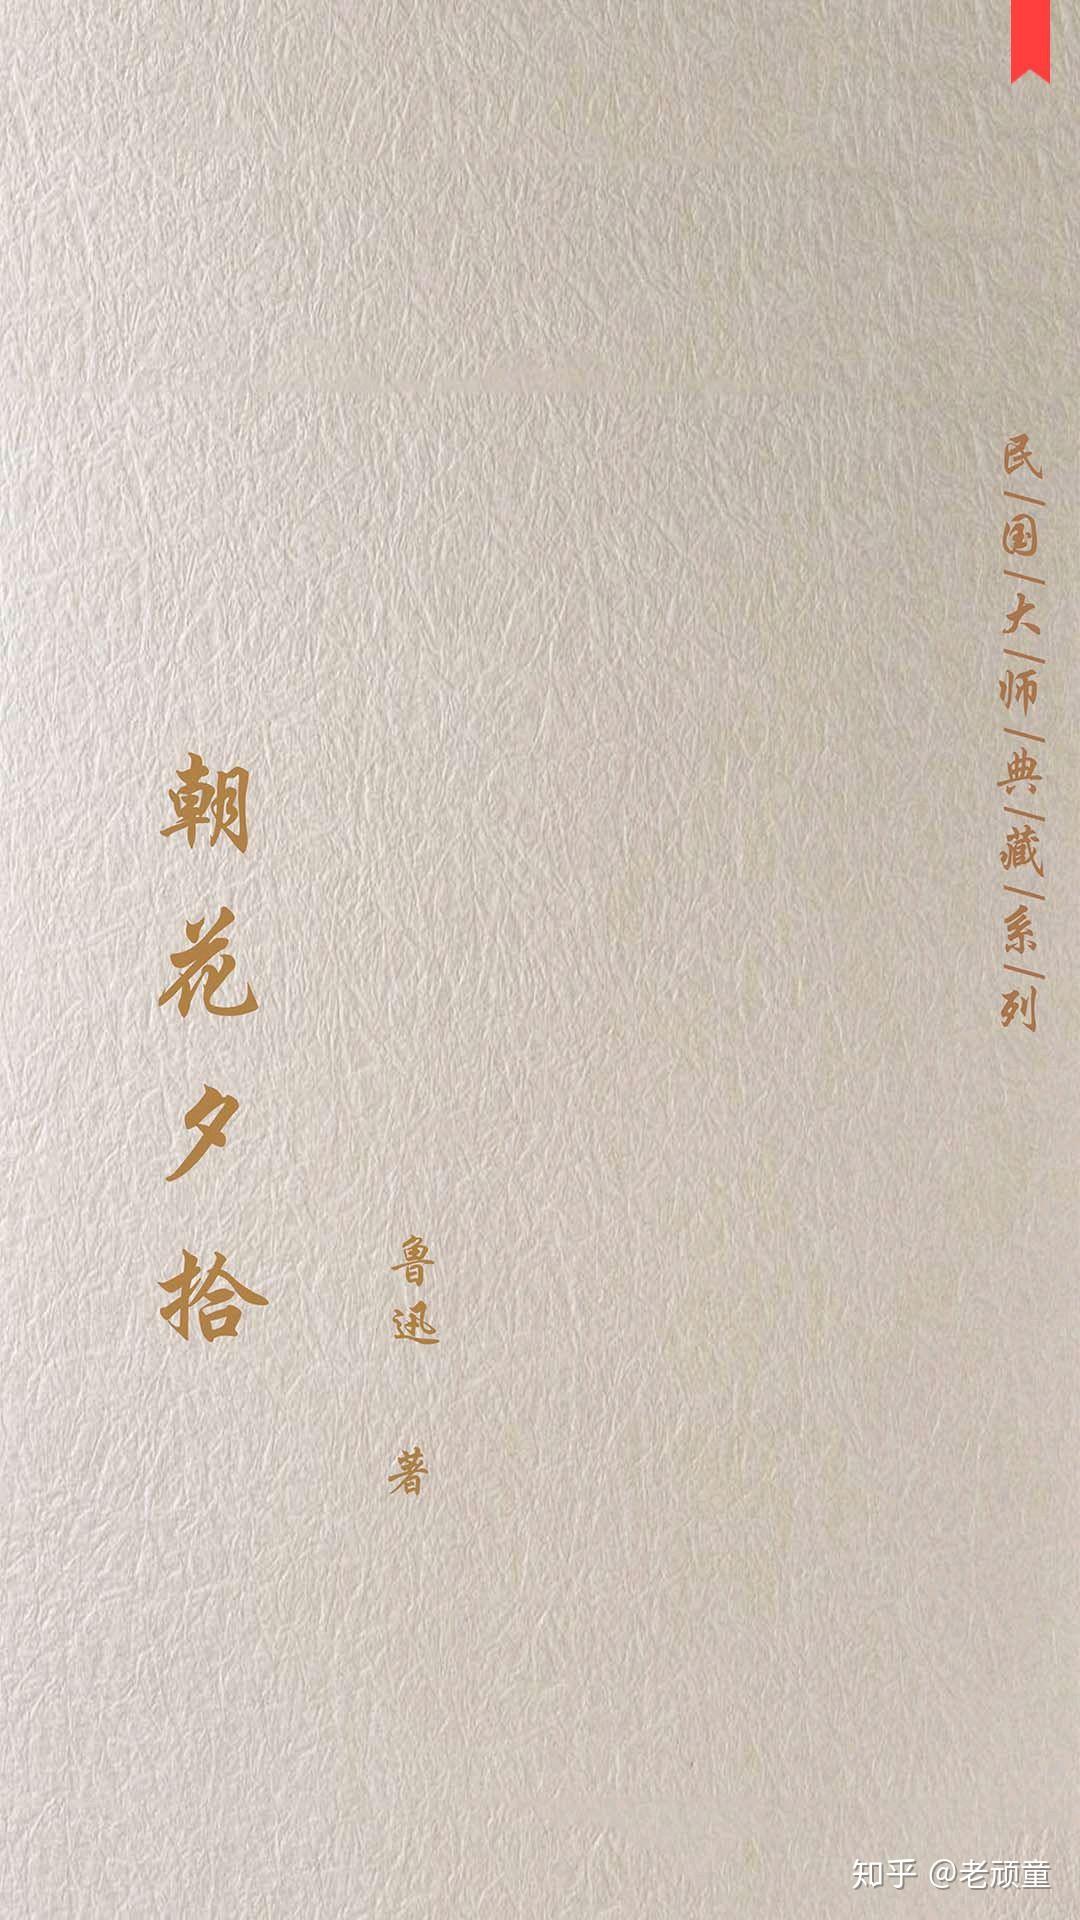 民|国|大|师|典|藏|系|列
朝花夕拾
鲁迅 著
知乎 @老顽童